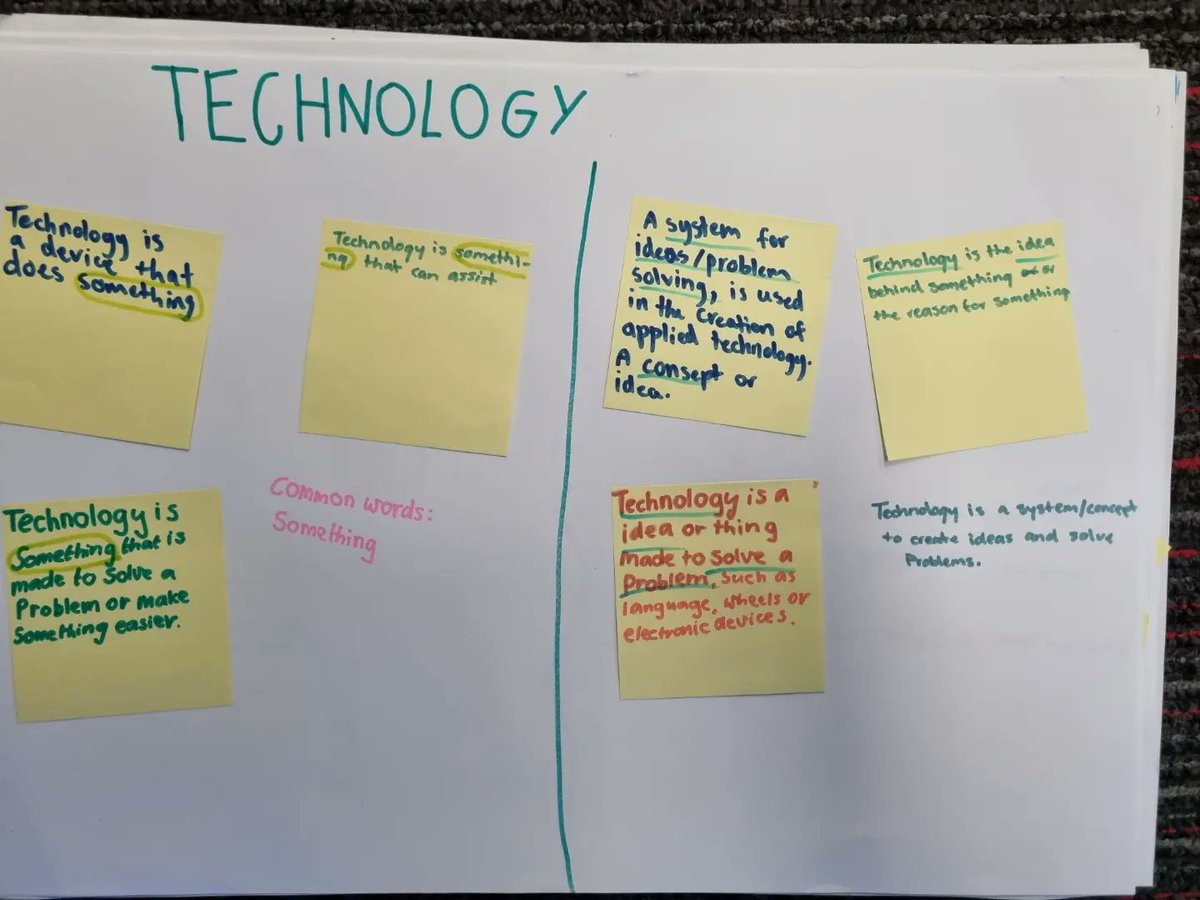 TECHNOLOGY
Technology is
a device that
does something
Technology is somethi-
ng that can assist
Technology is
Something that is
made to solve a
Problem or make
Something easier.
Common words:
Something
A system for
ideas/problem
solving, is used
in the creation of
applied technology.
A consept or
idea.
Technology is the idea
behind something or
the reason for something
Technology is a
idea or thing
made to solve a
Problem, such as
language, wheels or
electronic devices.
Technology is a system/concept
to create ideas and solve
Problems.